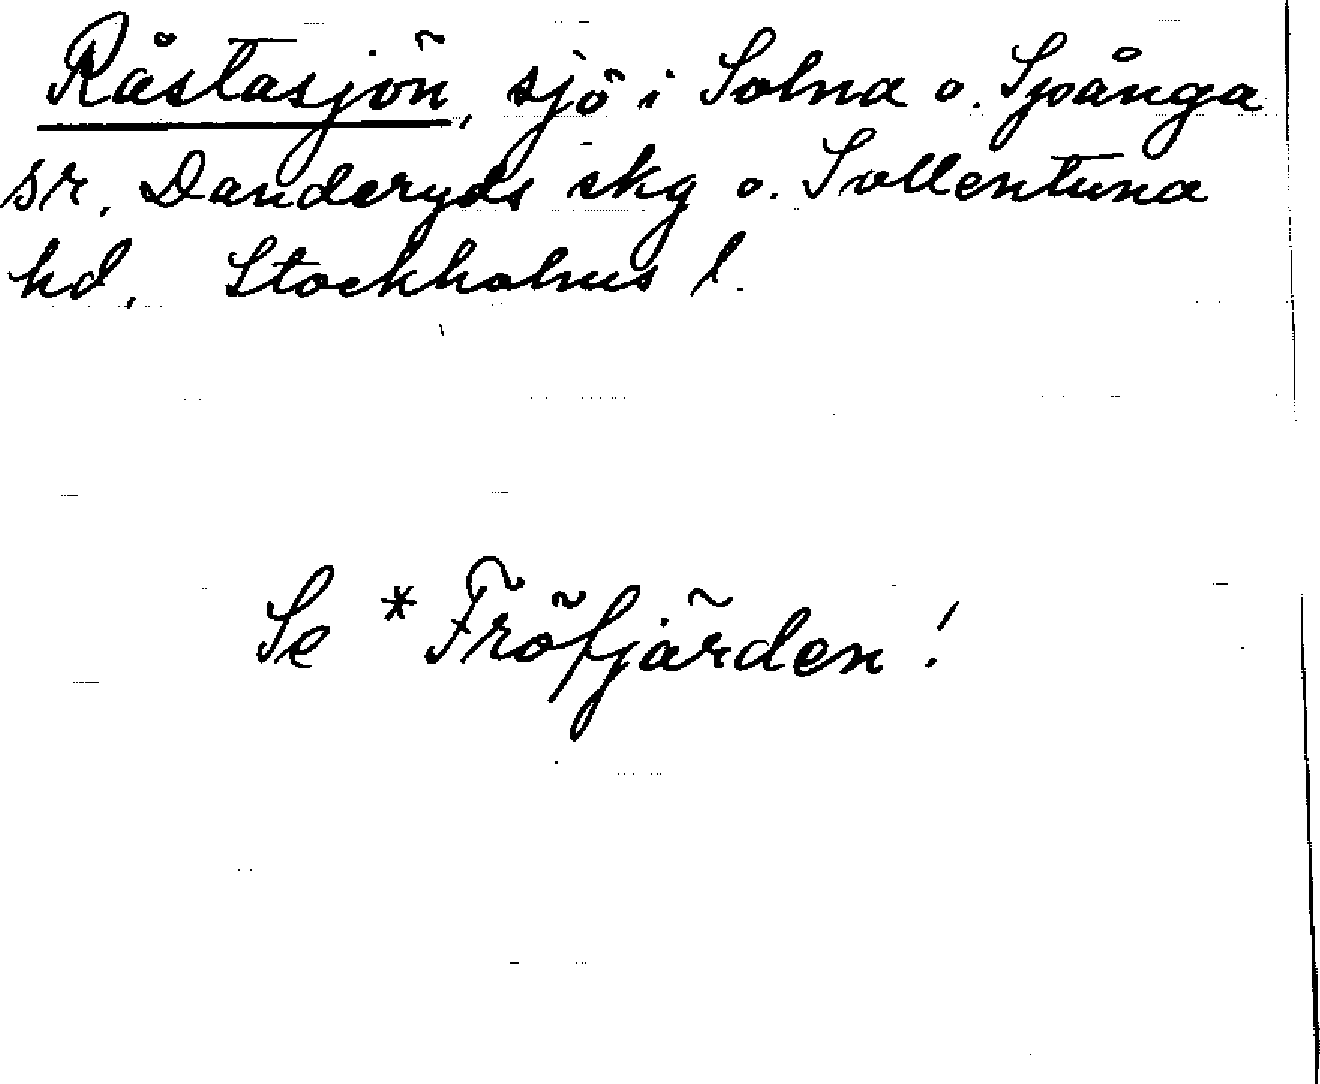 Råstasjön, sjö i Solna o. Spånga
sr. Danderyds skg o. Sollentuna
hd. Stockholms l.
Se *Fröfjärden!